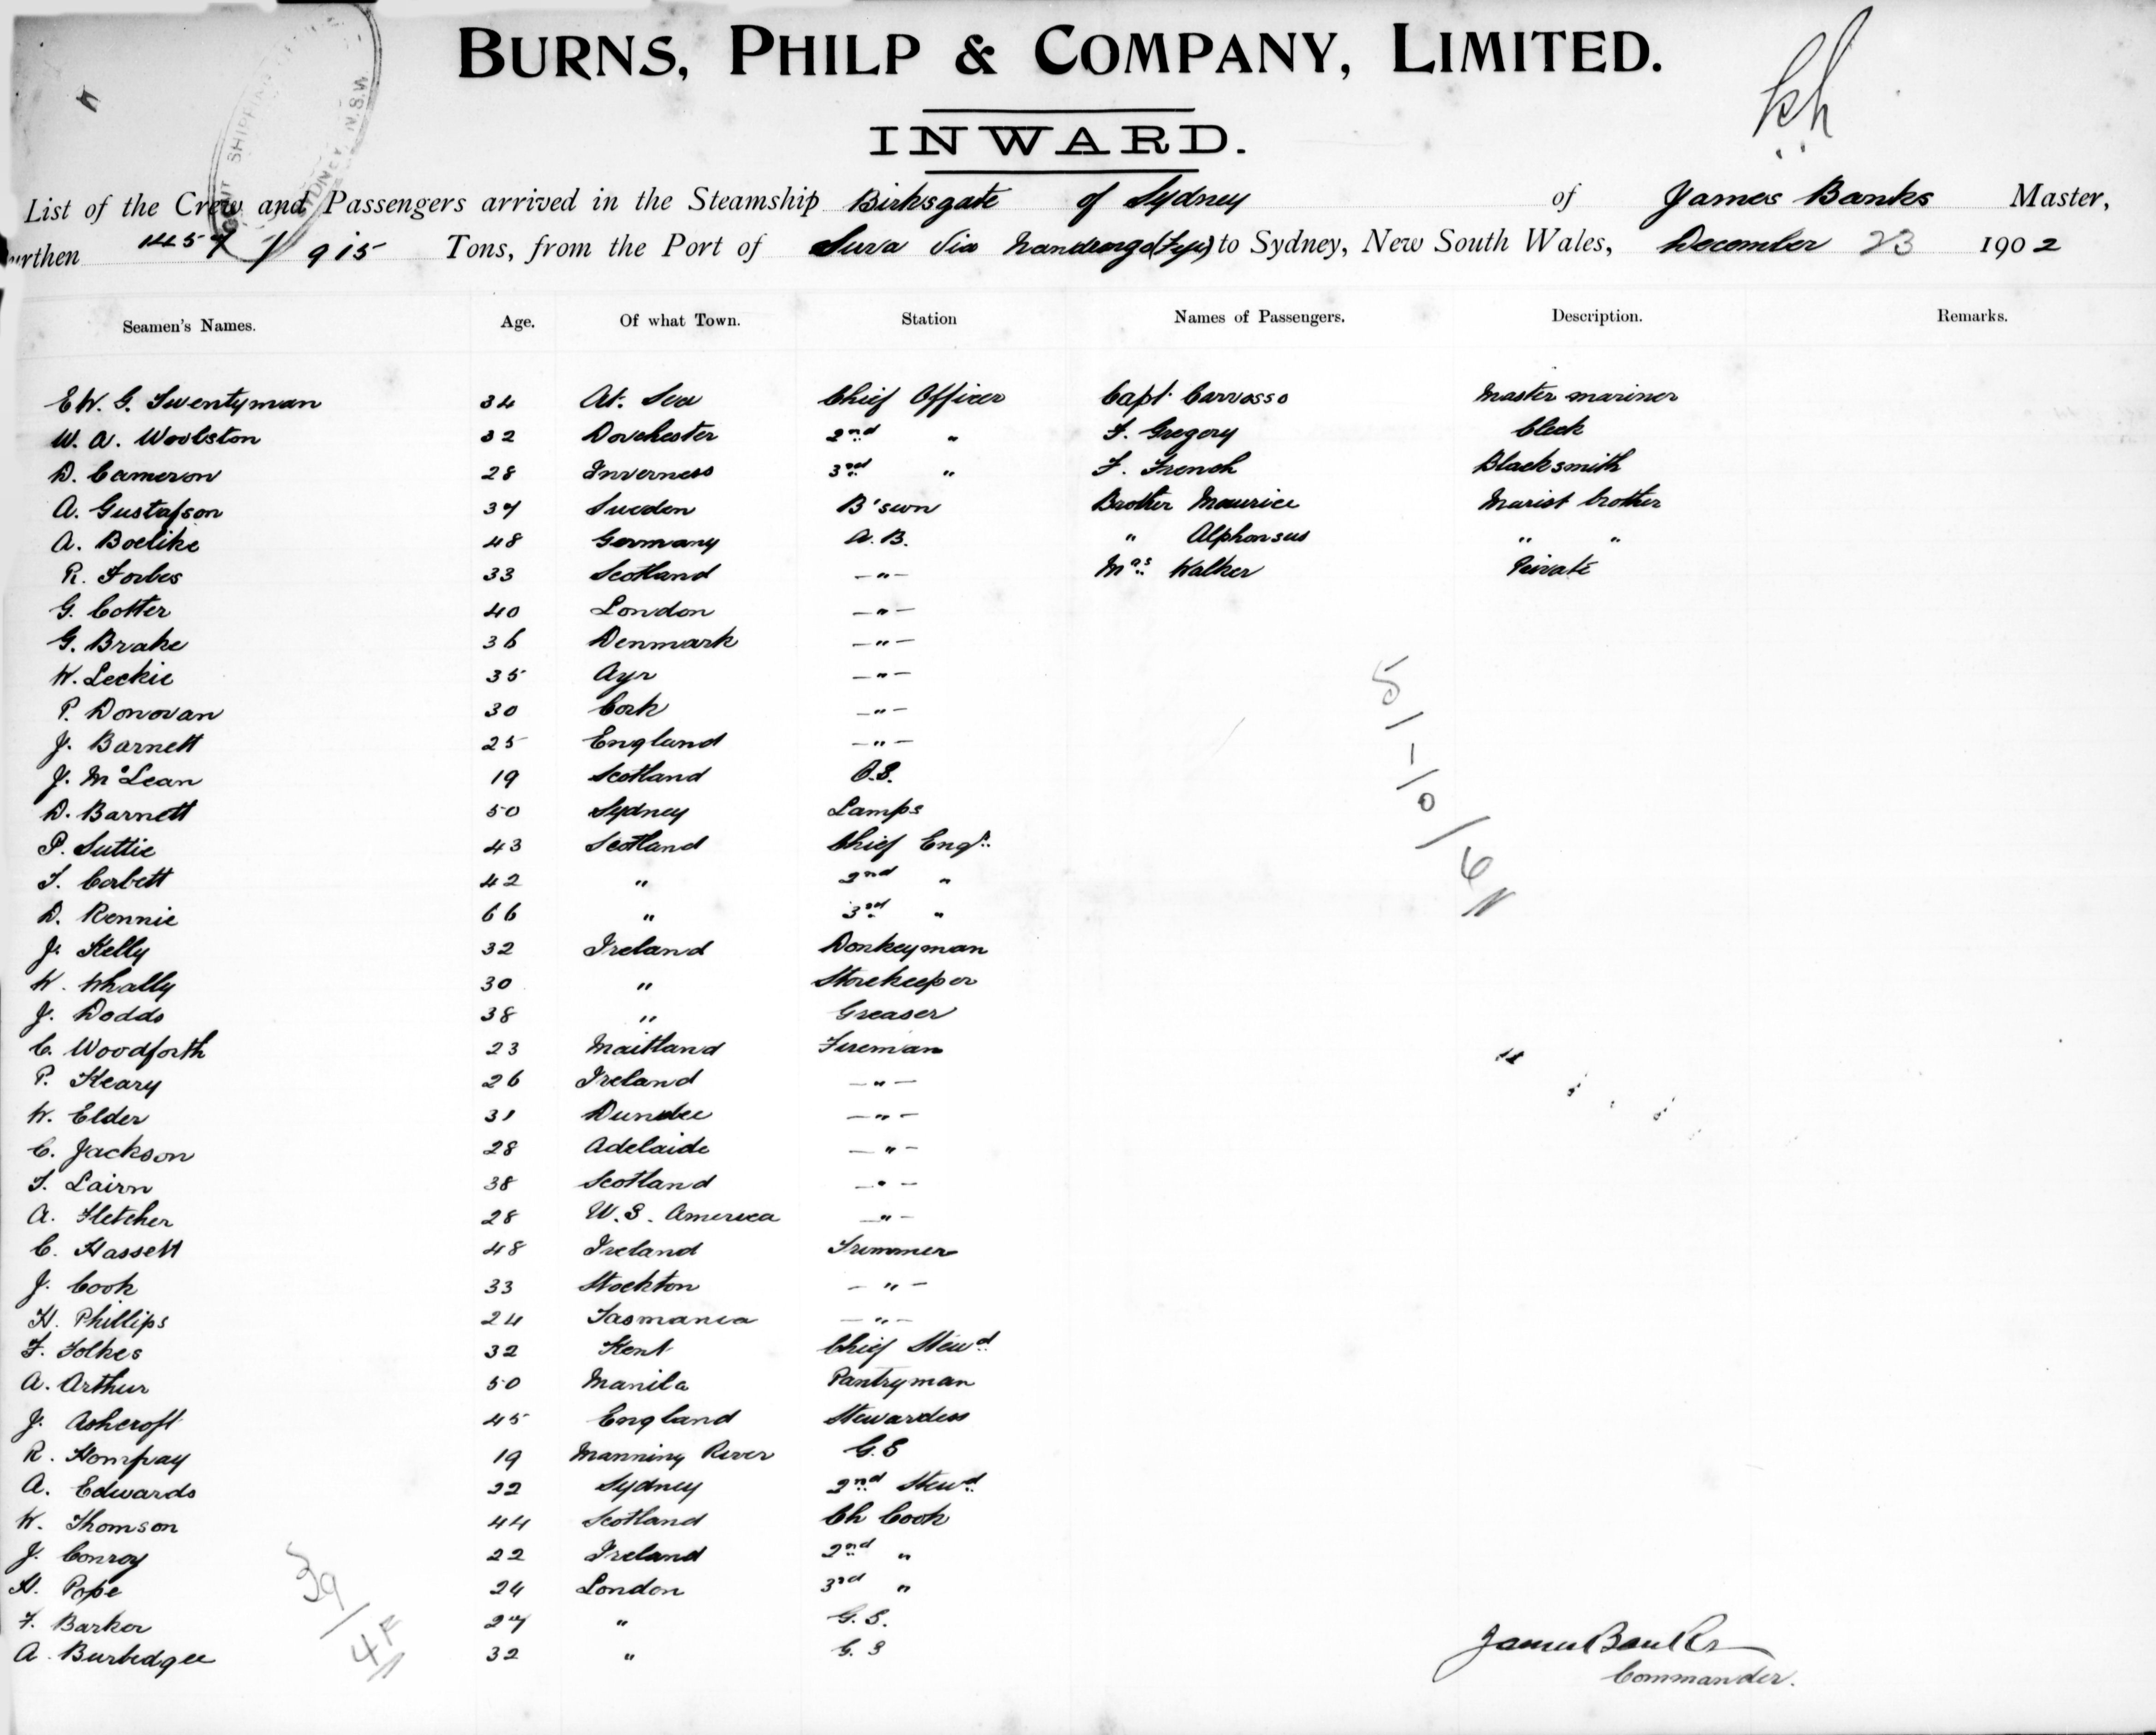 BURNS, PHILP & COMPANY, LIMITED.
INWARD.
List of the Crew and Passengers arrived in the Steamship Birksgate of Sydney of James Banks Master,
urthen 1457 / 915 Tons, from the Port of Suva via to Sydney, New South Wales, December 23 1902
Seamen's Names. Age. Of what Town. Station Names of Passengers. Description. Remarks.
E W. G. Swentyman 34 At. Sea Chief Officer Capt. Carvosso Master mariner
W. A. Woolston 32 Dorchester 2nd " F. Gregory Clerk
D. Cameron 28 Inverness 3rd " F. French Blacksmith
A. Gustafson 37 Sweden B'swn Brother Maurice Marist brother
A. Boelike 48 Germany A. B. " Alphonsus " "
R. Forbes 33 Scotland -"- Mrs Walker Private
G. Cotter 40 London -"-
G. Brake 36 Denmark -"-
W. Leckie 35 Ayr -"-
P. Donovan 30 Cork -"-
J. Barnett 25 England -"-
J. McLean 19 Scotland O.S.
D. Barnett 50 Sydney Lamps
P. Suttie 43 Scotland Chief Engr.
T. Corbett 42 " 2nd "
D. Rennie 66 " 3rd "
J. Kelly 32 Ireland Donkeyman
W. Whally 30 " Storekeeper
J. Dodds 38 " Greaser
C. Woodforth 23 Maitland Fireman
P. Keary 26 Ireland -"-
W. Elder 31 Dundee -"-
C. Jackson 28 Adelaide -"-
T. Lairn 38 Scotland -"-
A. Fletcher 28 U.S. America -"-
C. Hassett 48 Ireland Trimmer
J. Cook 33 Stockton -"-
H. Phillips 24 Tasmania -"-
F. Folkes 32 Kent Chief Stewd
A. Arthur 50 Manila Pantryman
J. Ashcroft 45 England Stewardess
R. Hompay 19 Manning River G.S
A. Edwards 22 Sydney 2nd Stewd
W. Thomson 44 Scotland Ch Cook
J. Conroy 22 Ireland 2nd "
H. Pope 24 London 3rd "
F. Barker 27 " G. S.
A. Burbedgee 32 " G. S
James Banks
Commander.